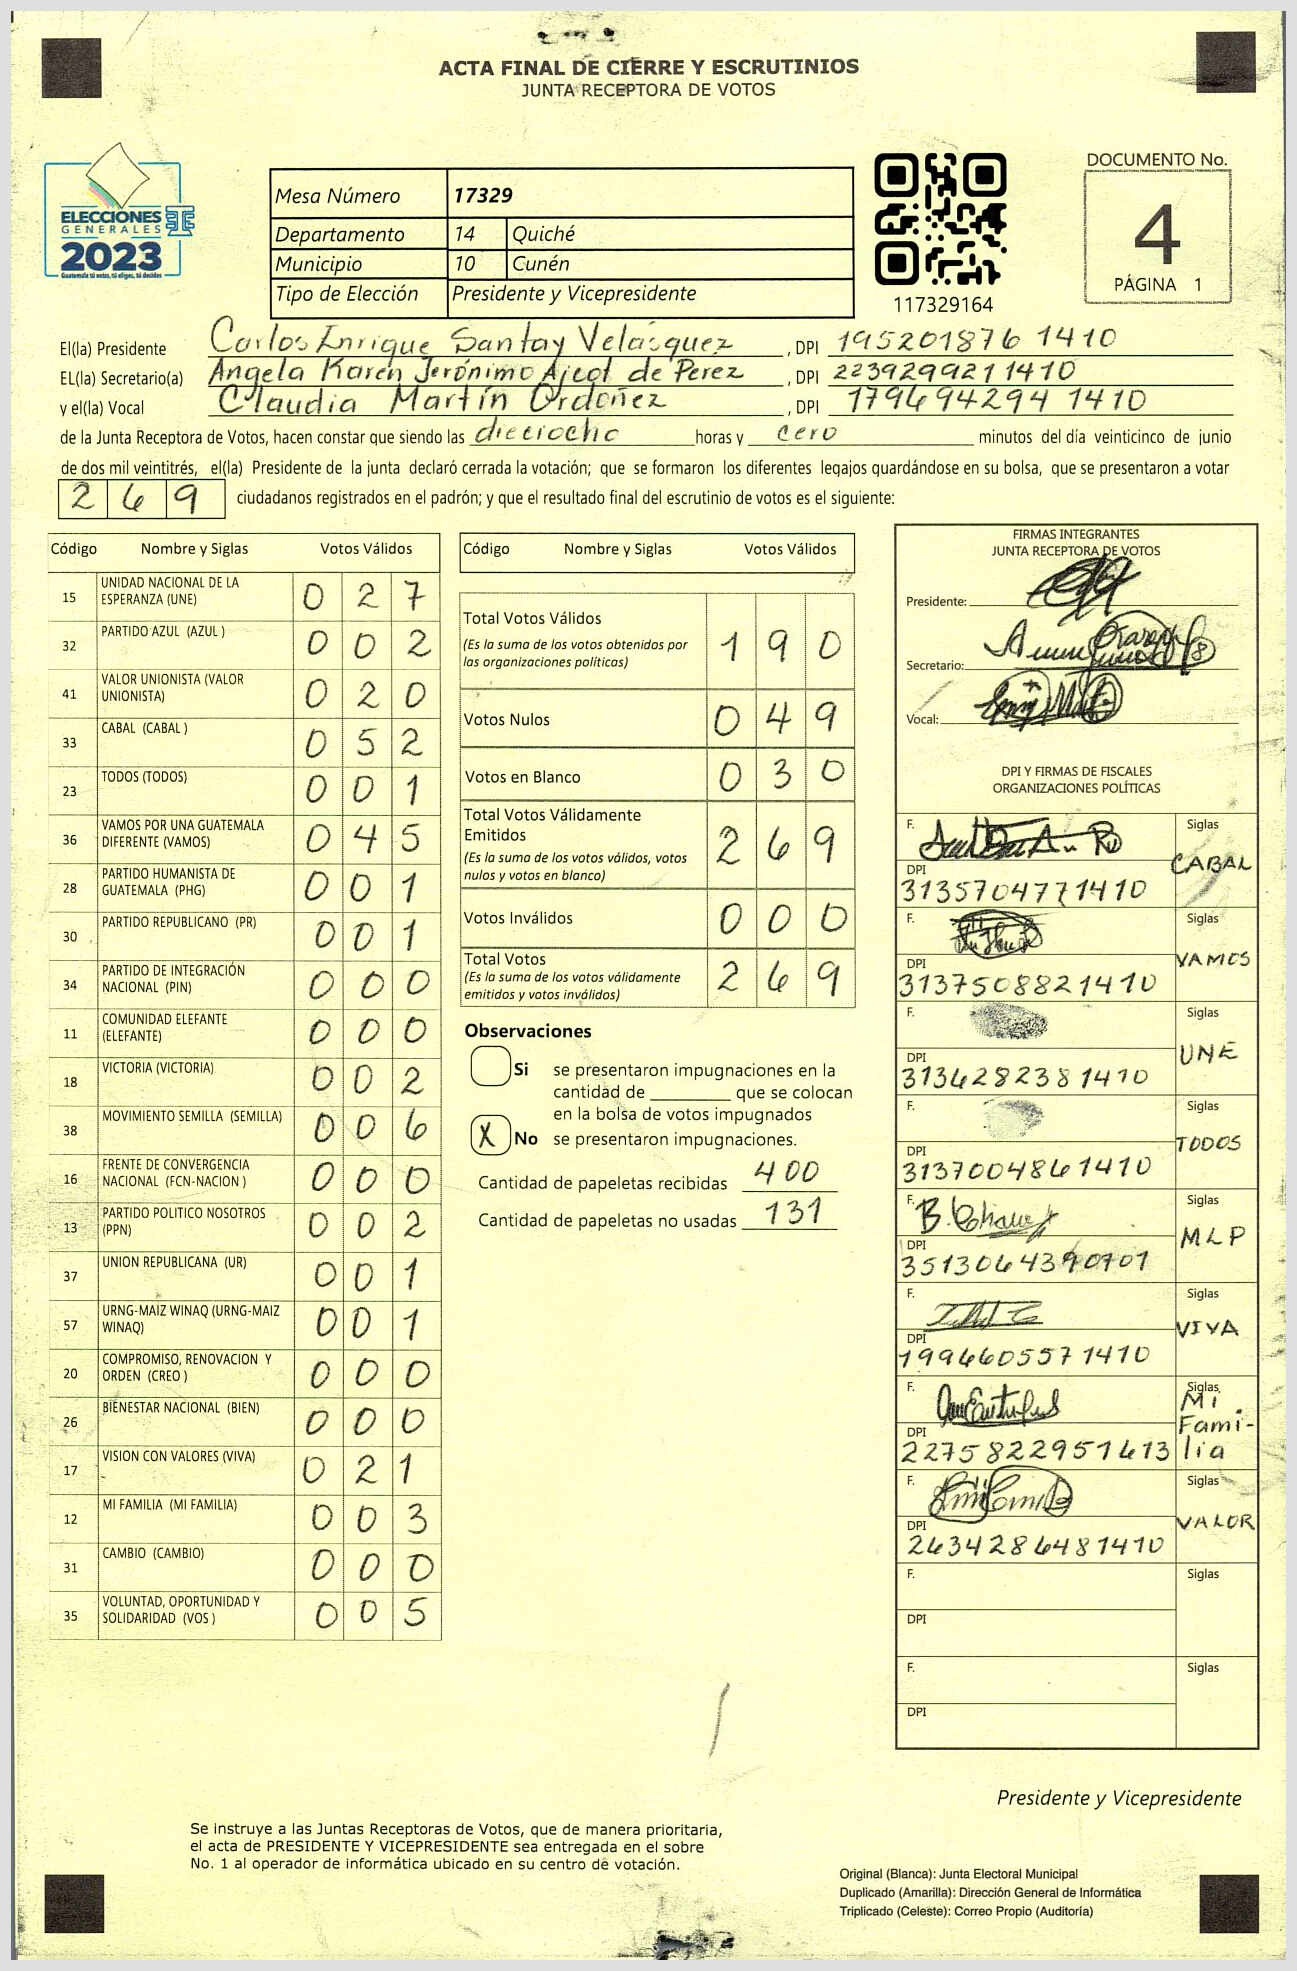 ACTA FINAL DE CIERRE Y ESCRUTINIOS
JUNTA RECEPTORA DE VOTOS
ELECCIONES
GENERALES
2023
Guatemala tú votas, tú eliges, tú decides
Mesa Número 17329
Departamento 14 Quiché
Municipio 10 Cunén
Tipo de Elección Presidente y Vicepresidente
117329164
DOCUMENTO No.
4
PÁGINA 1
El(la) Presidente Carlos Enrique Santay Velásquez, DPI 195201876 1410
EL(la) Secretario(a) Angela Karen Jerónimo Ajcot de Perez, DPI 2239299211410
y el(la) Vocal Claudia Martín Ordoñez, DPI 179694294 1410
de la Junta Receptora de Votos, hacen constar que siendo las dieciocho horas y cero minutos del día veinticinco de junio
de dos mil veintitrés, el(la) Presidente de la junta declaró cerrada la votación; que se formaron los diferentes legajos guardándose en su bolsa, que se presentaron a votar
269 ciudadanos registrados en el padrón; y que el resultado final del escrutinio de votos es el siguiente:
Código Nombre y Siglas Votos Válidos
15 UNIDAD NACIONAL DE LA ESPERANZA (UNE) 0 2 7
32 PARTIDO AZUL (AZUL ) 0 0 2
41 VALOR UNIONISTA (VALOR UNIONISTA) 0 2 0
33 CABAL (CABAL ) 0 5 2
23 TODOS (TODOS) 0 0 1
36 VAMOS POR UNA GUATEMALA DIFERENTE (VAMOS) 0 4 5
28 PARTIDO HUMANISTA DE GUATEMALA (PHG) 0 0 1
30 PARTIDO REPUBLICANO (PR) 0 0 1
34 PARTIDO DE INTEGRACIÓN NACIONAL (PIN) 0 0 0
11 COMUNIDAD ELEFANTE (ELEFANTE) 0 0 0
18 VICTORIA (VICTORIA) 0 0 2
38 MOVIMIENTO SEMILLA (SEMILLA) 0 0 6
16 FRENTE DE CONVERGENCIA NACIONAL (FCN-NACION ) 0 0 0
13 PARTIDO POLITICO NOSOTROS (PPN) 0 0 2
37 UNION REPUBLICANA (UR) 0 0 1
57 URNG-MAIZ WINAQ (URNG-MAIZ WINAQ) 0 0 1
20 COMPROMISO, RENOVACION Y ORDEN (CREO ) 0 0 0
26 BIENESTAR NACIONAL (BIEN) 0 0 0
17 VISION CON VALORES (VIVA) 0 2 1
12 MI FAMILIA (MI FAMILIA) 0 0 3
31 CAMBIO (CAMBIO) 0 0 0
35 VOLUNTAD, OPORTUNIDAD Y SOLIDARIDAD (VOS ) 0 0 5
Código Nombre y Siglas Votos Válidos
Total Votos Válidos 1 9 0
(Es la suma de los votos obtenidos por
las organizaciones políticas)
Votos Nulos 0 4 9
Votos en Blanco 0 3 0
Total Votos Válidamente
Emitidos 2 6 9
(Es la suma de los votos válidos, votos
nulos y votos en blanco)
Votos Inválidos 0 0 0
Total Votos 2 6 9
(Es la suma de los votos válidamente
emitidos y votos inválidos)
Observaciones
Si se presentaron impugnaciones en la
cantidad de ________ que se colocan
en la bolsa de votos impugnados
X No se presentaron impugnaciones.
Cantidad de papeletas recibidas 400
Cantidad de papeletas no usadas 131
FIRMAS INTEGRANTES
JUNTA RECEPTORA DE VOTOS
Presidente:
Secretario:
Vocal:
DPI Y FIRMAS DE FISCALES
ORGANIZACIONES POLÍTICAS
F. Siglas CABAL
DPI 3135704771410
F. Siglas VAMOS
DPI 3137508821410
F. Siglas UNE
DPI 3134282381410
F. Siglas TODOS
DPI 3137004861410
F. Siglas MLP
DPI 3513064390701
F. Siglas VIVA
DPI 1994605571410
F. Siglas Mi Fami-lia
DPI 2275822951413
F. Siglas VALOR
DPI 2634286481410
F. Siglas
DPI
F. Siglas
DPI
Presidente y Vicepresidente
Se instruye a las Juntas Receptoras de Votos, que de manera prioritaria,
el acta de PRESIDENTE Y VICEPRESIDENTE sea entregada en el sobre
No. 1 al operador de informática ubicado en su centro de votación.
Original (Blanca): Junta Electoral Municipal
Duplicado (Amarilla): Dirección General de Informática
Triplicado (Celeste): Correo Propio (Auditoría)